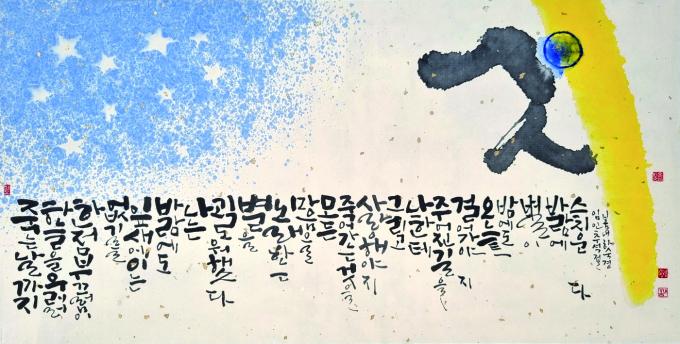 죽는 날까지
하늘을 우러러
한 점 부끄럼
없기를
잎새에 이는
바람에도
나는
괴로워했다
별을
노래하는
마음으로
모든
죽어가는 것을
사랑해야지
그리고
나한테
주어진 길을
걸어가야지
오늘
밤에도
별이
바람에
스치운다
임인추석절